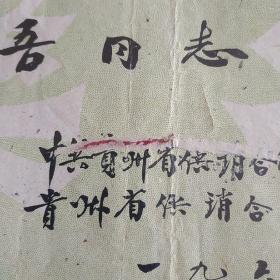 吾同志
中共貴州省供销合
貴州省供销合
一九六